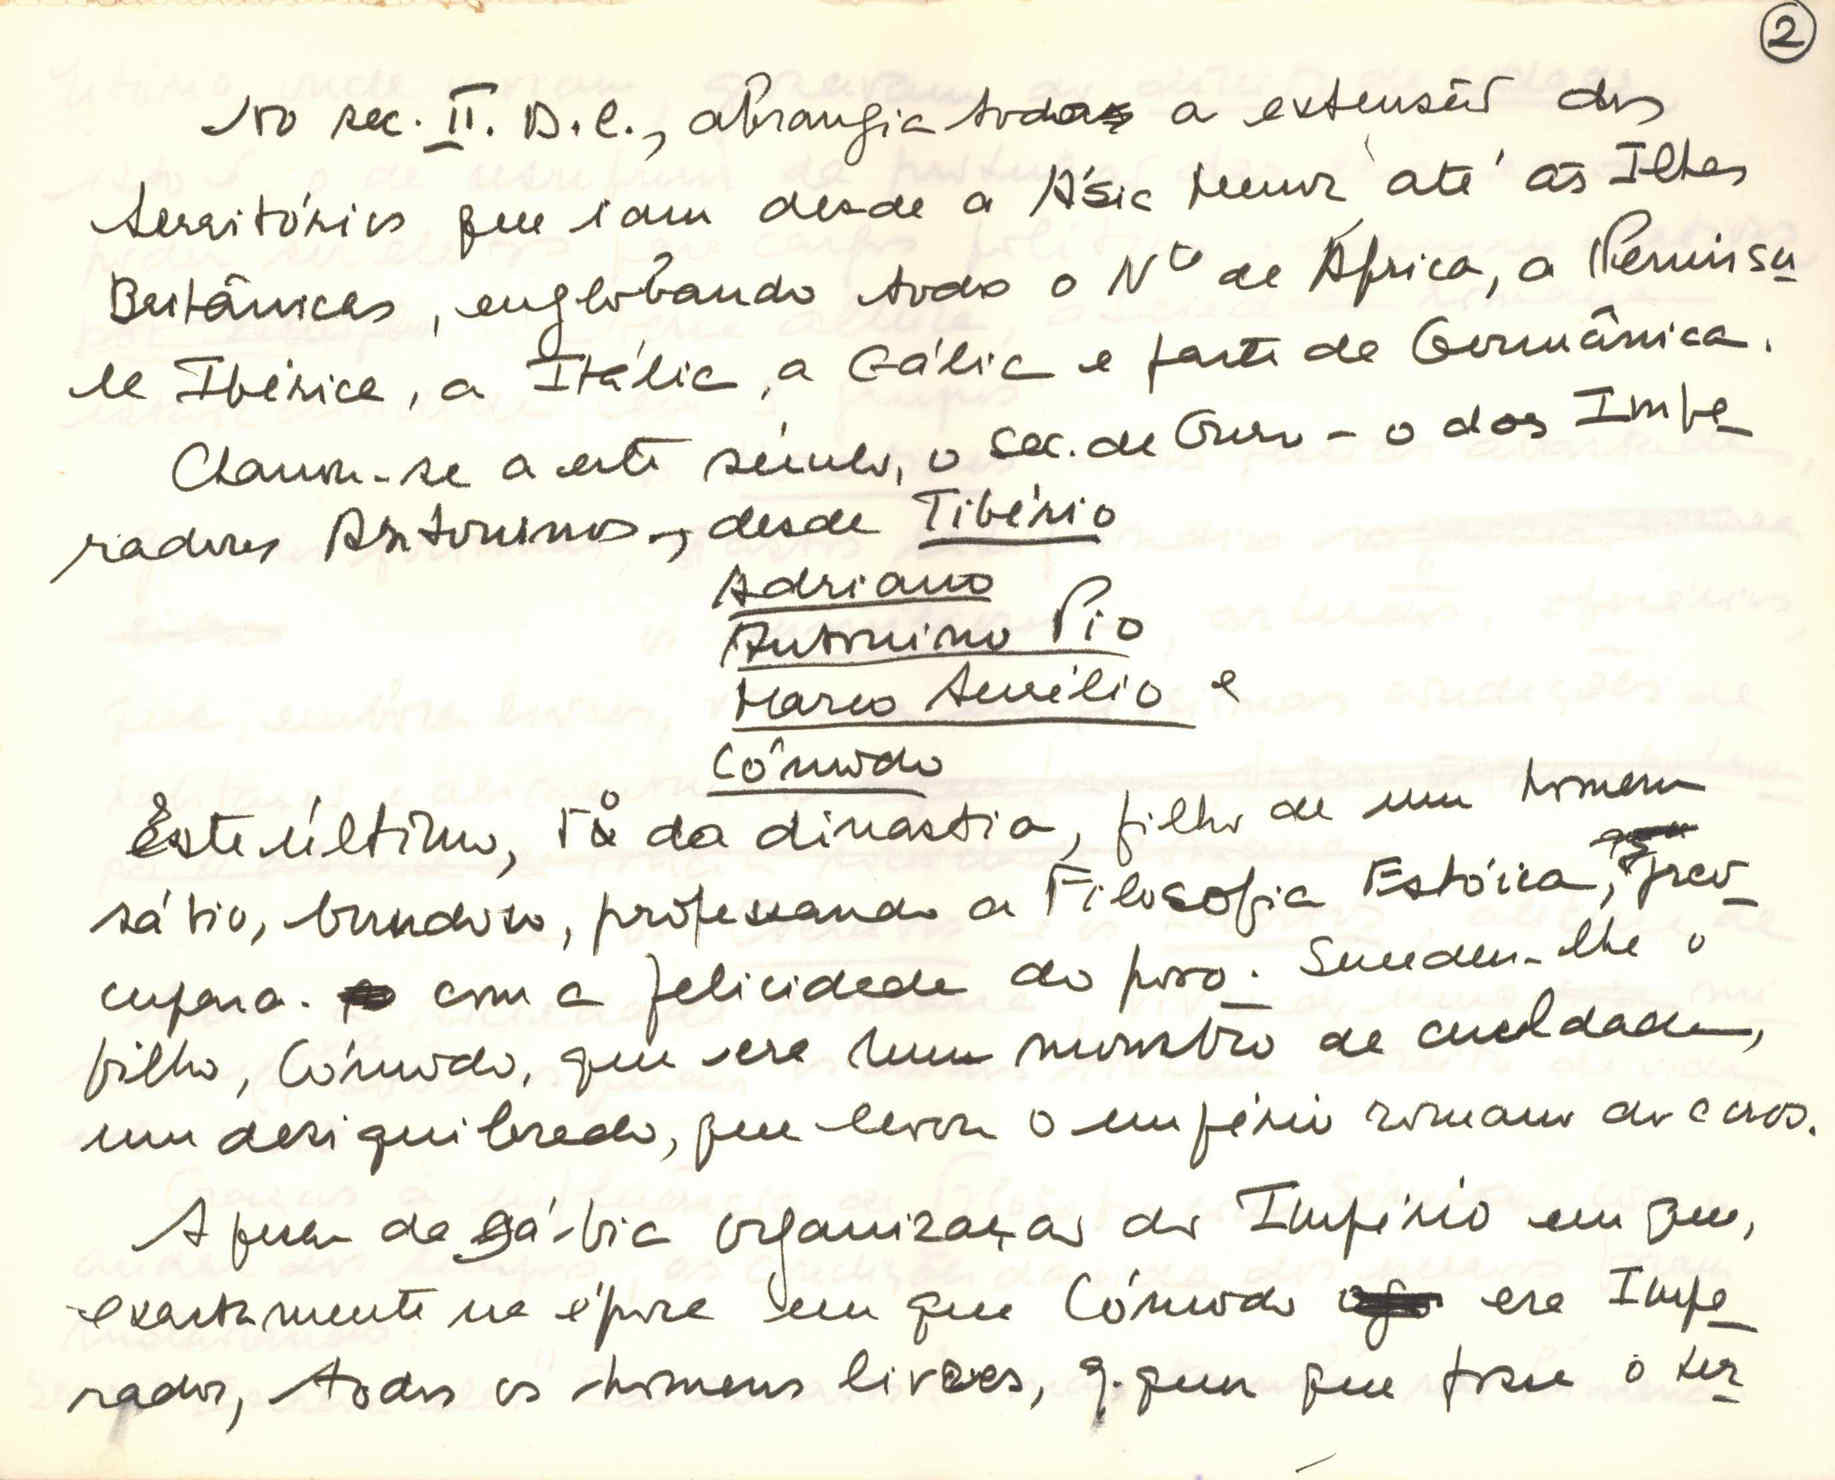 2
No sec. II. D.C., abrangia toda a extensão dos
territórios que iam desde a Ásia Menor até às Ilhas
Britânicas, englobando todo o Nte de África, a Penínsu
la Ibérica, a Itália, a Gália e parte da Germânica.
Chamou-se a este século, o Sec. de Ouro - o dos Impe
radores Antoninos -, desde Tibério
Adriano
Antonino Pio
Marco Aurélio e
Cómodo
Este último, da dinastia, filho de um homem
sábio, bondoso, professando a Filosofia Estóica, preo
cupava- com a felicidade do povo. Sucedeu-lhe o
filho, Cómodo, que era um monstro de crueldade,
um desiquilibrado, que levou o império romano ao caos.
Apesar da sábia organização do Império em que,
exactamente na época em que Cómodo era Impe
rador, todos os homens livres, q. quer que fosse o ter